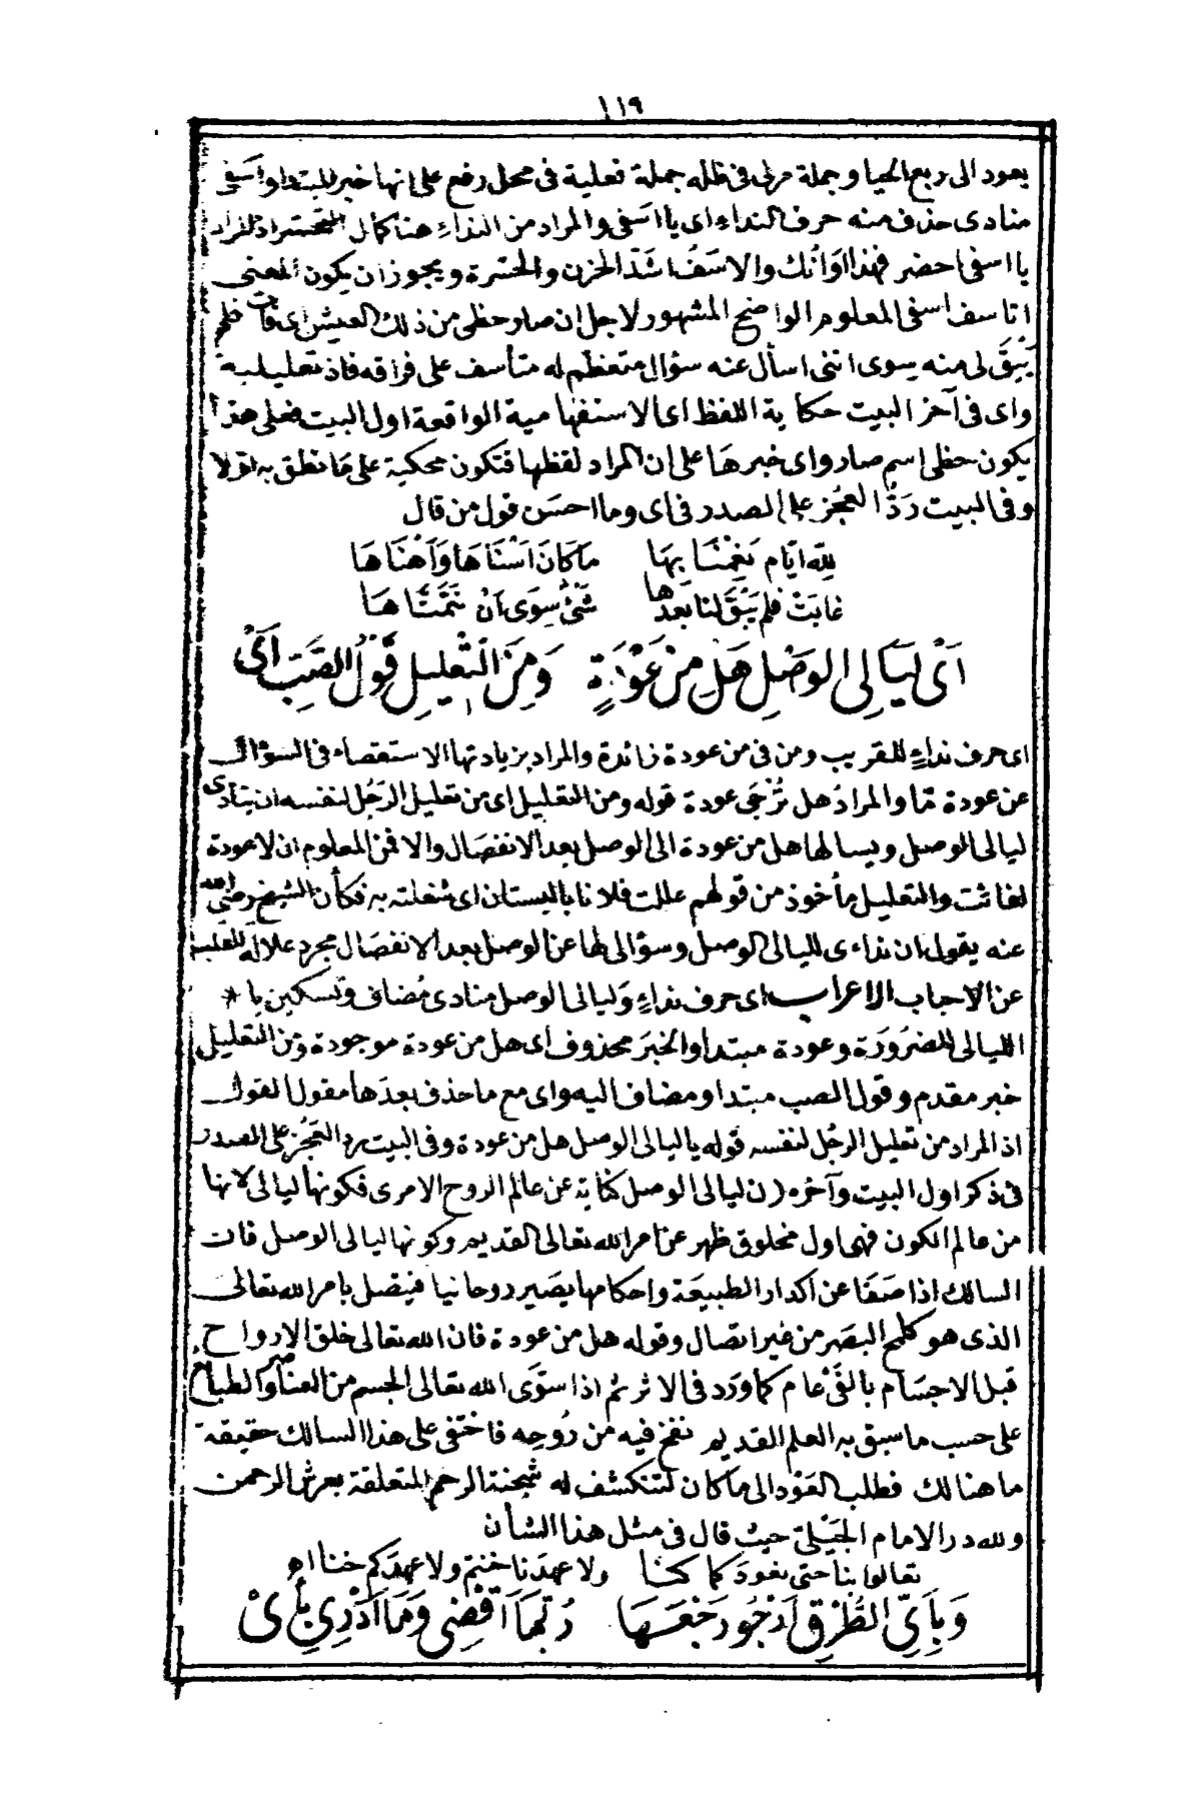 ١١٩
يعود الى ربع الحيا وجملة مر لى فى ظله جملة فعلية فى محل رفع على انها خبر للمبتدا واسفى
منادى حذف منه حرف النداء اى يا اسفى والمراد من النداء هنا كمال
يا اسفى احضر فهذا اوانك والاسف اشد الحزن والحسرة ويجوز ان يكون المعنى
اتاسف اسفى المعلوم الواضح المشهور لاجل ان صار حظى من ذلك العيش اى فات فلم
يَبْقَ لى منه سوى اننى اسأل عنه سؤال متعظم له متأسف على فراقه فاذ تعليلية
واى فى آخر البيت حكاية اللفظ اى الاستفهامية الواقعة اول البيت فعلى هذا
يكون حظى اسم صار واى خبرها على ان المراد لفظها فتكون محكية على ما نطق به اولا
وفى البيت رَدُّ العجُز على الصدر فى اى وما احسَن قول من قال
لِلّه ايّام نَعِمْنَا بِهَا    مَا كَانَ اَسْنَاهَا وَاَهْنَاهَا
غابَتْ فلم يَبْقَ لنا بَعدَها    شَىْءٌ سِوَى اَنْ نَتَمَنَّاهَا
اَىْ لَيَالِى الوَصْلِ هَلْ مِنْ عَوْدَةٍ    وَمِنَ التَّعْلِيلِ قَوْلُ الصَّبِّ اَىْ
اى حرف نداءٍ للقريب ومن فى من عودة زائدة والمراد بزيادتها الاستقصاء فى السؤال
عن عودة مّا والمرادُ هل تُرْجَى عودة قوله ومن التعليل اى من تعليل الرَجُل لنفسه ان ينادى
ليالى الوصل ويسالها هل من عودة الى الوصل بعد الانفصَال والا فمن المعلوم ان لا عودة
لفائت والتعليل مأخوذ من قولهم عللت فلانا بالبستان اى شغلته به فكأن الشيخ رضى الله
عنه يقول ان نداءى لليالى الوصل وسؤالى لها عن الوصل بعد الانفصَال مجرد علالة للقلب
عن الاحباب الاعراب اى حرف نداءٍ وَليالى الوصل منادى مُضاف وتسكين يا *
الليالى للضرَورَة وعودة مبتدا والخبرَ محذوف اى هل من عودة موجودة ومن التعليل
خبر مقدم وقول الصب مبتدا ومضاف اليه واى مع ما حذف بعدَها مقول القول
اذ المراد من تعليل الرجُل لنفسه قوله يا ليالى الوصل هل من عودة وفى البيت رد العَجُز على الصدر
فى ذكر اول البيت وآخره (ن ليالى الوصل كناية عن عالم الروح الامرى فكونها ليالى لانها
من عالم الكون فهى اول مخلوق ظهر عن امر الله تعالى القديم وكونها ليالى الوصل فان
السالك اذا صَفَا عن اكدار الطبيعَة واحكامها يصَير روحانيا فيتصل بامر الله تعالى
الذى هو كلمح البصَر من غير اتصال وقوله هل من عودة فان الله تعالى خلق الارواح
قبل الاجسَام بالفَىْ عام كما ورَد فى الاثر ثم اذا سوَّى الله تعالى الجسم من العناصر والطبائع
على حسب ما سبق به العلم القديم نفخ فيه من رُوحِه فاختفى على هذا السالك حقيقة
ما هنالك فطلب العَوْد الى ما كان لتنكشف له شجنة الرحم المتعلقة بعرش الرحمن
ولله در الامام الجَيْلىّ حيث قال فى مثل هذا الشأن
تعالوا بنا حتى نعودَ كما كنا    ولا عهدَنا خنتم ولا عهدَكم خنا اه
وَبِاَىِّ الطُّرْقِ اَرْجُو رَجْعَهَا    رُبَّمَا اَقْضِى وَمَا اَدْرِى بِأَىْ